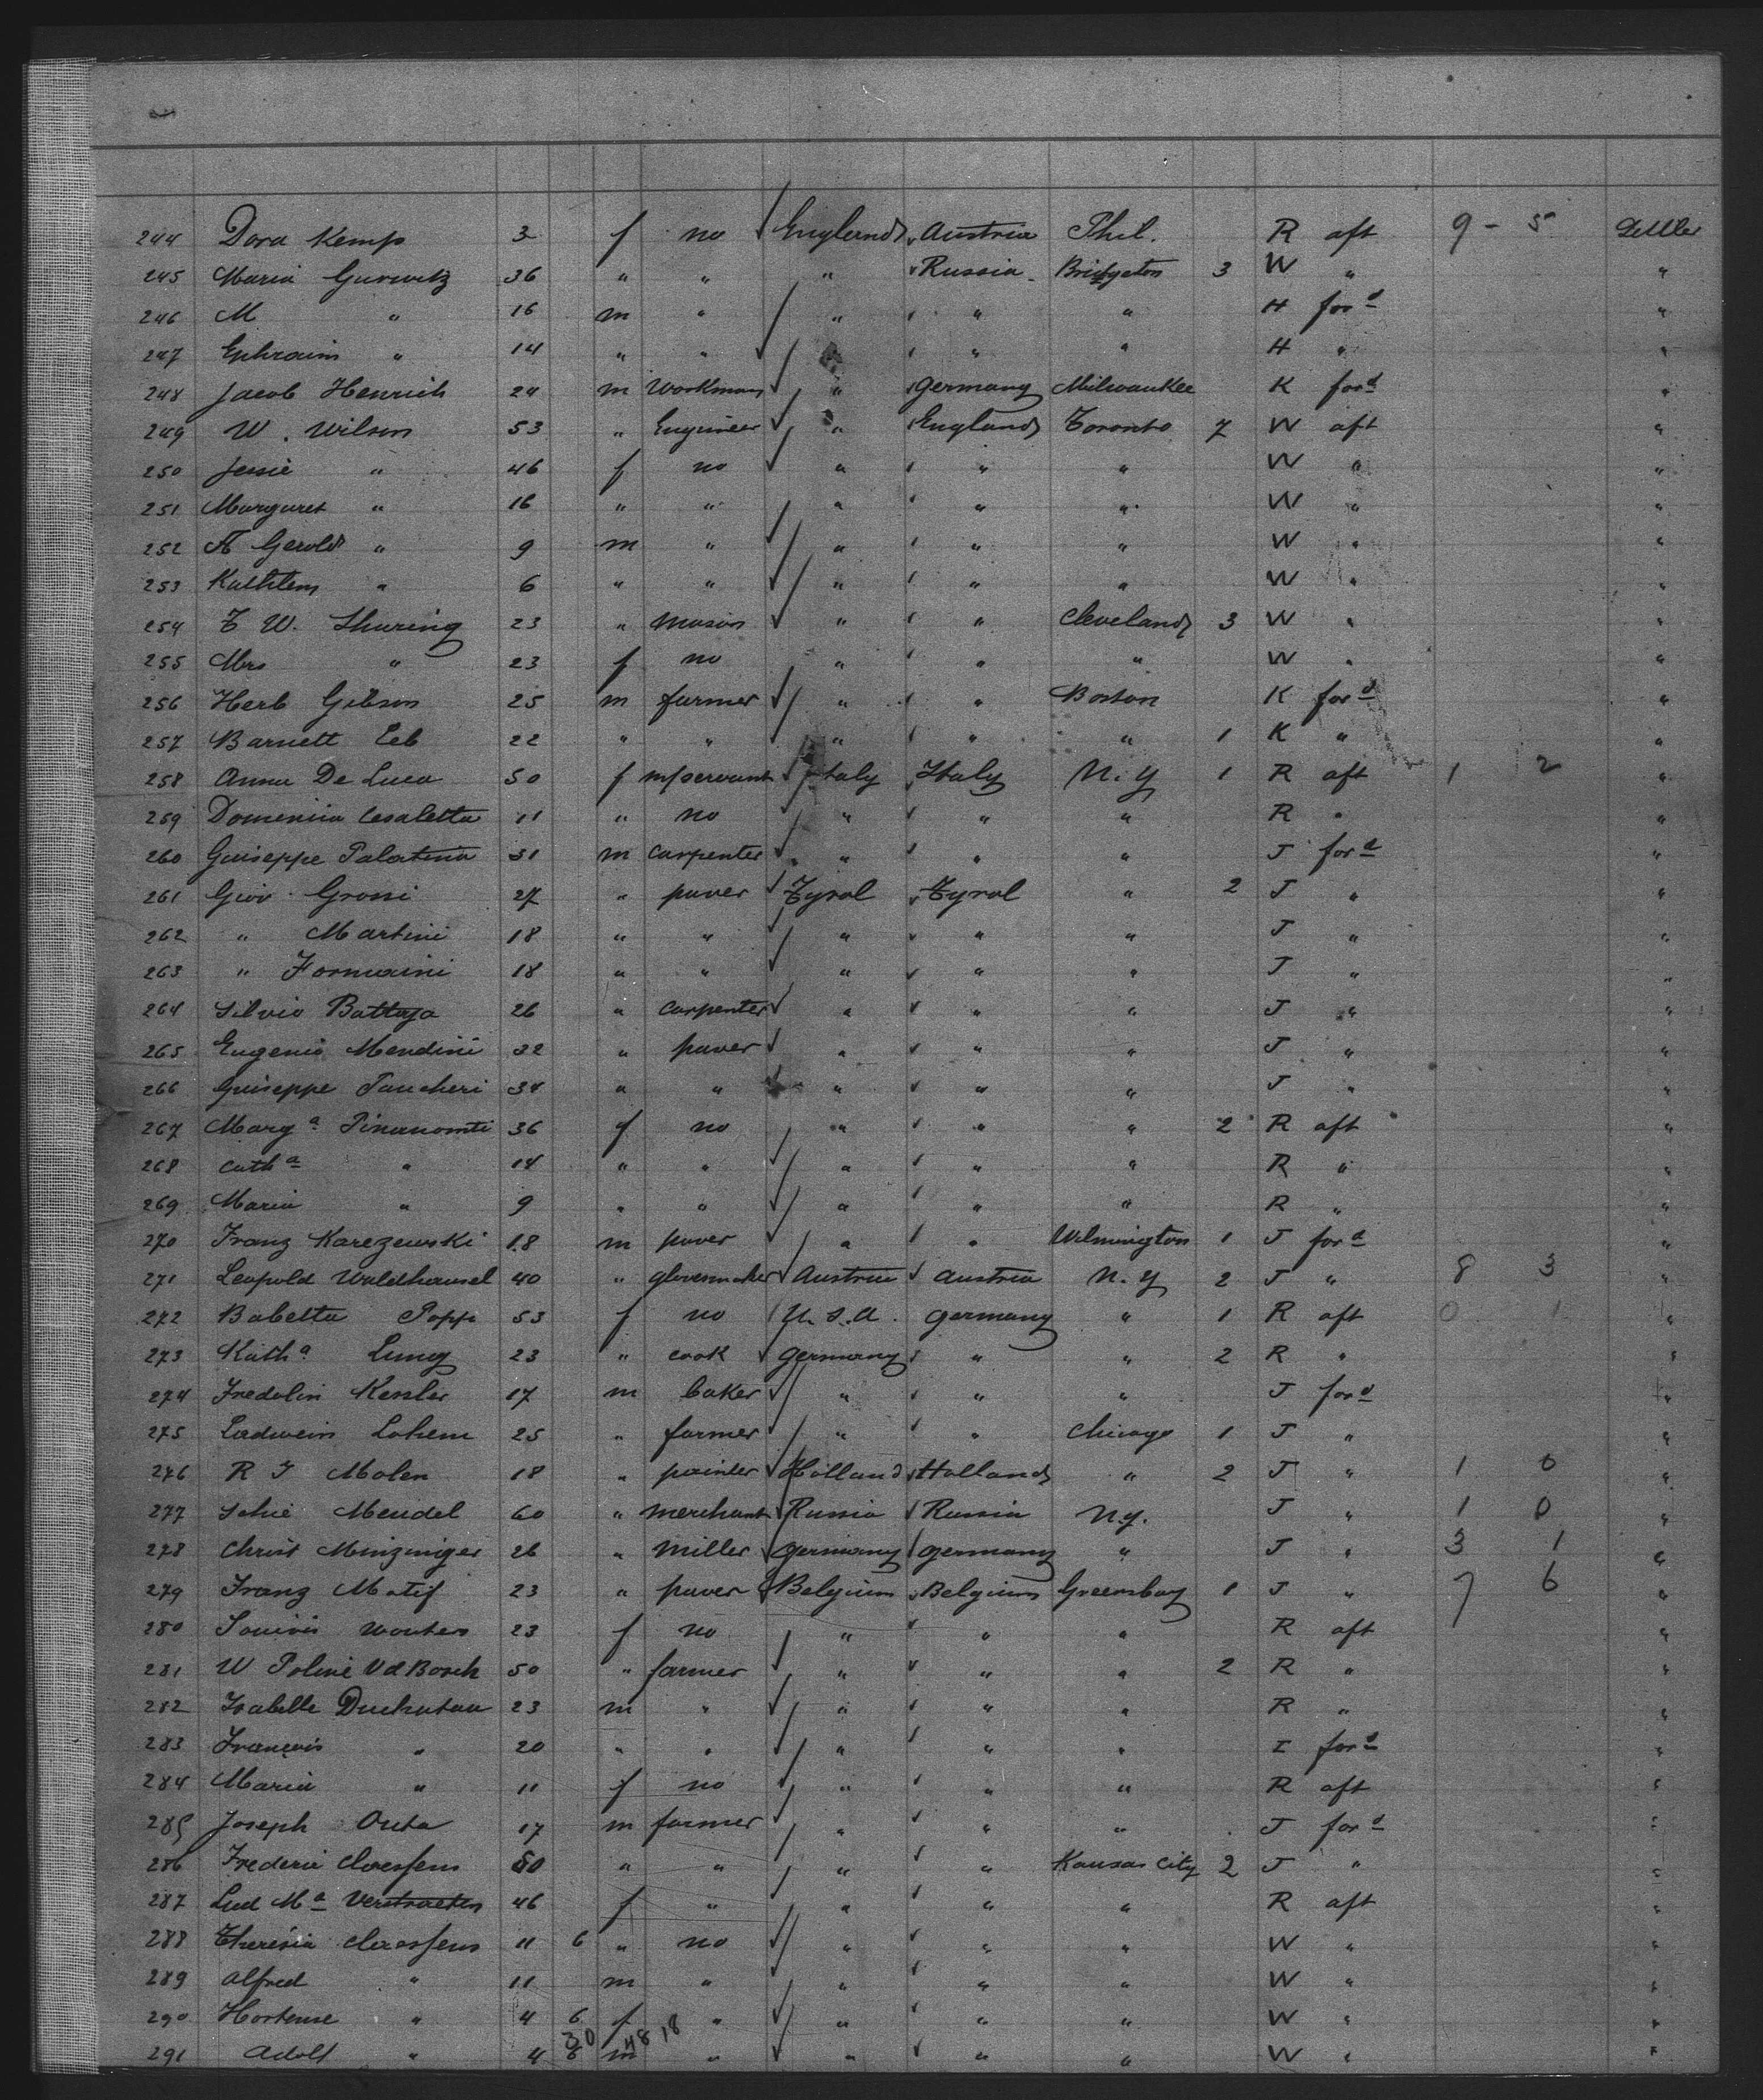 244 Dora Kemp 3 f no England Austria Phil. R aft 9 - 5 Settler
245 Maria Gurwitz 36 " " " Russia Bridgeton 3 W " "
246 M " 16 m " " " " H ford "
247 Ephraim " 14 " " " " " H " "
248 Jacob Henrich 24 m Workman " Germany Milwaukee K ford "
249 W. Wilson 53 " Engineer " England Toronto 7 W aft "
250 Jessie " 46 f no " " " W " "
251 Margaret " 16 " " " " " W " "
252 A Gerold " 9 m " " " " W " "
253 Kathleen " 6 " " " " " W " "
254 T W. Thuring 23 " mason " " Cleveland 3 W " "
255 Mrs " 23 f no " " " W " "
256 Herb Gibson 25 m farmer " " Boston K ford "
257 Barnett Leb 22 " " " " " 1 K " "
258 Anna De Luca 50 f mfservant Italy Italy N. Y 1 R aft 1 2 "
259 Domenica Casaletta 11 " no " " " R " "
260 Guiseppe Palatina 31 m carpenter " " " J ford "
261 Giov. Grossi 27 " paver Tyrol Tyrol " 2 J " "
262 " Martini 18 " " " " " J " "
263 " Formaini 18 " " " " " J " "
264 Silvio Battaja 26 " carpenter " " " J " "
265 Eugenio Mendini 32 " paver " " " J " "
266 Guiseppe Paucheri 34 " " " " " J " "
267 Marga Pinanomti 36 f no " " " 2 R aft "
268 Catha " 14 " " " " " R " "
269 Maria " 9 " " " " " R " "
270 Franz Karezewski 18 m paver " " Wilmington 1 J ford "
271 Leopold Waldhausel 40 " glovesmaker Austria Austria N. Y 2 J " 8 3 "
272 Babetta Popp 53 f no U. S. A. Germany " 1 R aft 0 1 "
273 Katha Lung 23 " cook Germany " " 2 R " "
274 Fredolin Kessler 17 m baker " " " J ford "
275 Ladwein Lohem 25 " farmer " " Chicago 1 J " "
276 R J Molen 18 " painter Holland Holland " 2 J " 1 0 "
277 Schie Mendel 60 " merchant Russia Russia N.Y. J " 1 0 "
278 Christ Minzinger 26 " miller Germany Germany " J " 3 1 "
279 Franz Matif 23 " paver Belgium Belgium Greensbay 1 J " 7 6 "
280 Louisis Wouters 23 f no " " " R aft "
281 W Poline Vd Bosch 50 " farmer " " " 2 R " "
282 Isabelle Duchateau 23 m " " " " R " "
283 François " 20 " " " " " I ford "
284 Maria " 11 f no " " " R aft "
285 Joseph Outa 17 m farmer " " " J ford "
286 Frederic Claessens 50 " " " " Kansas City 2 J " "
287 Lud Ma Verstraeten 46 f " " " " R aft "
288 Theresia Claessens 11 6 " no " " " W " "
289 Alfred " 11 m " " " " W " "
290 Hortense " 4 6 f " " " " W " "
30 48 18
291 Adolf " 4 6 m " " " " W " "